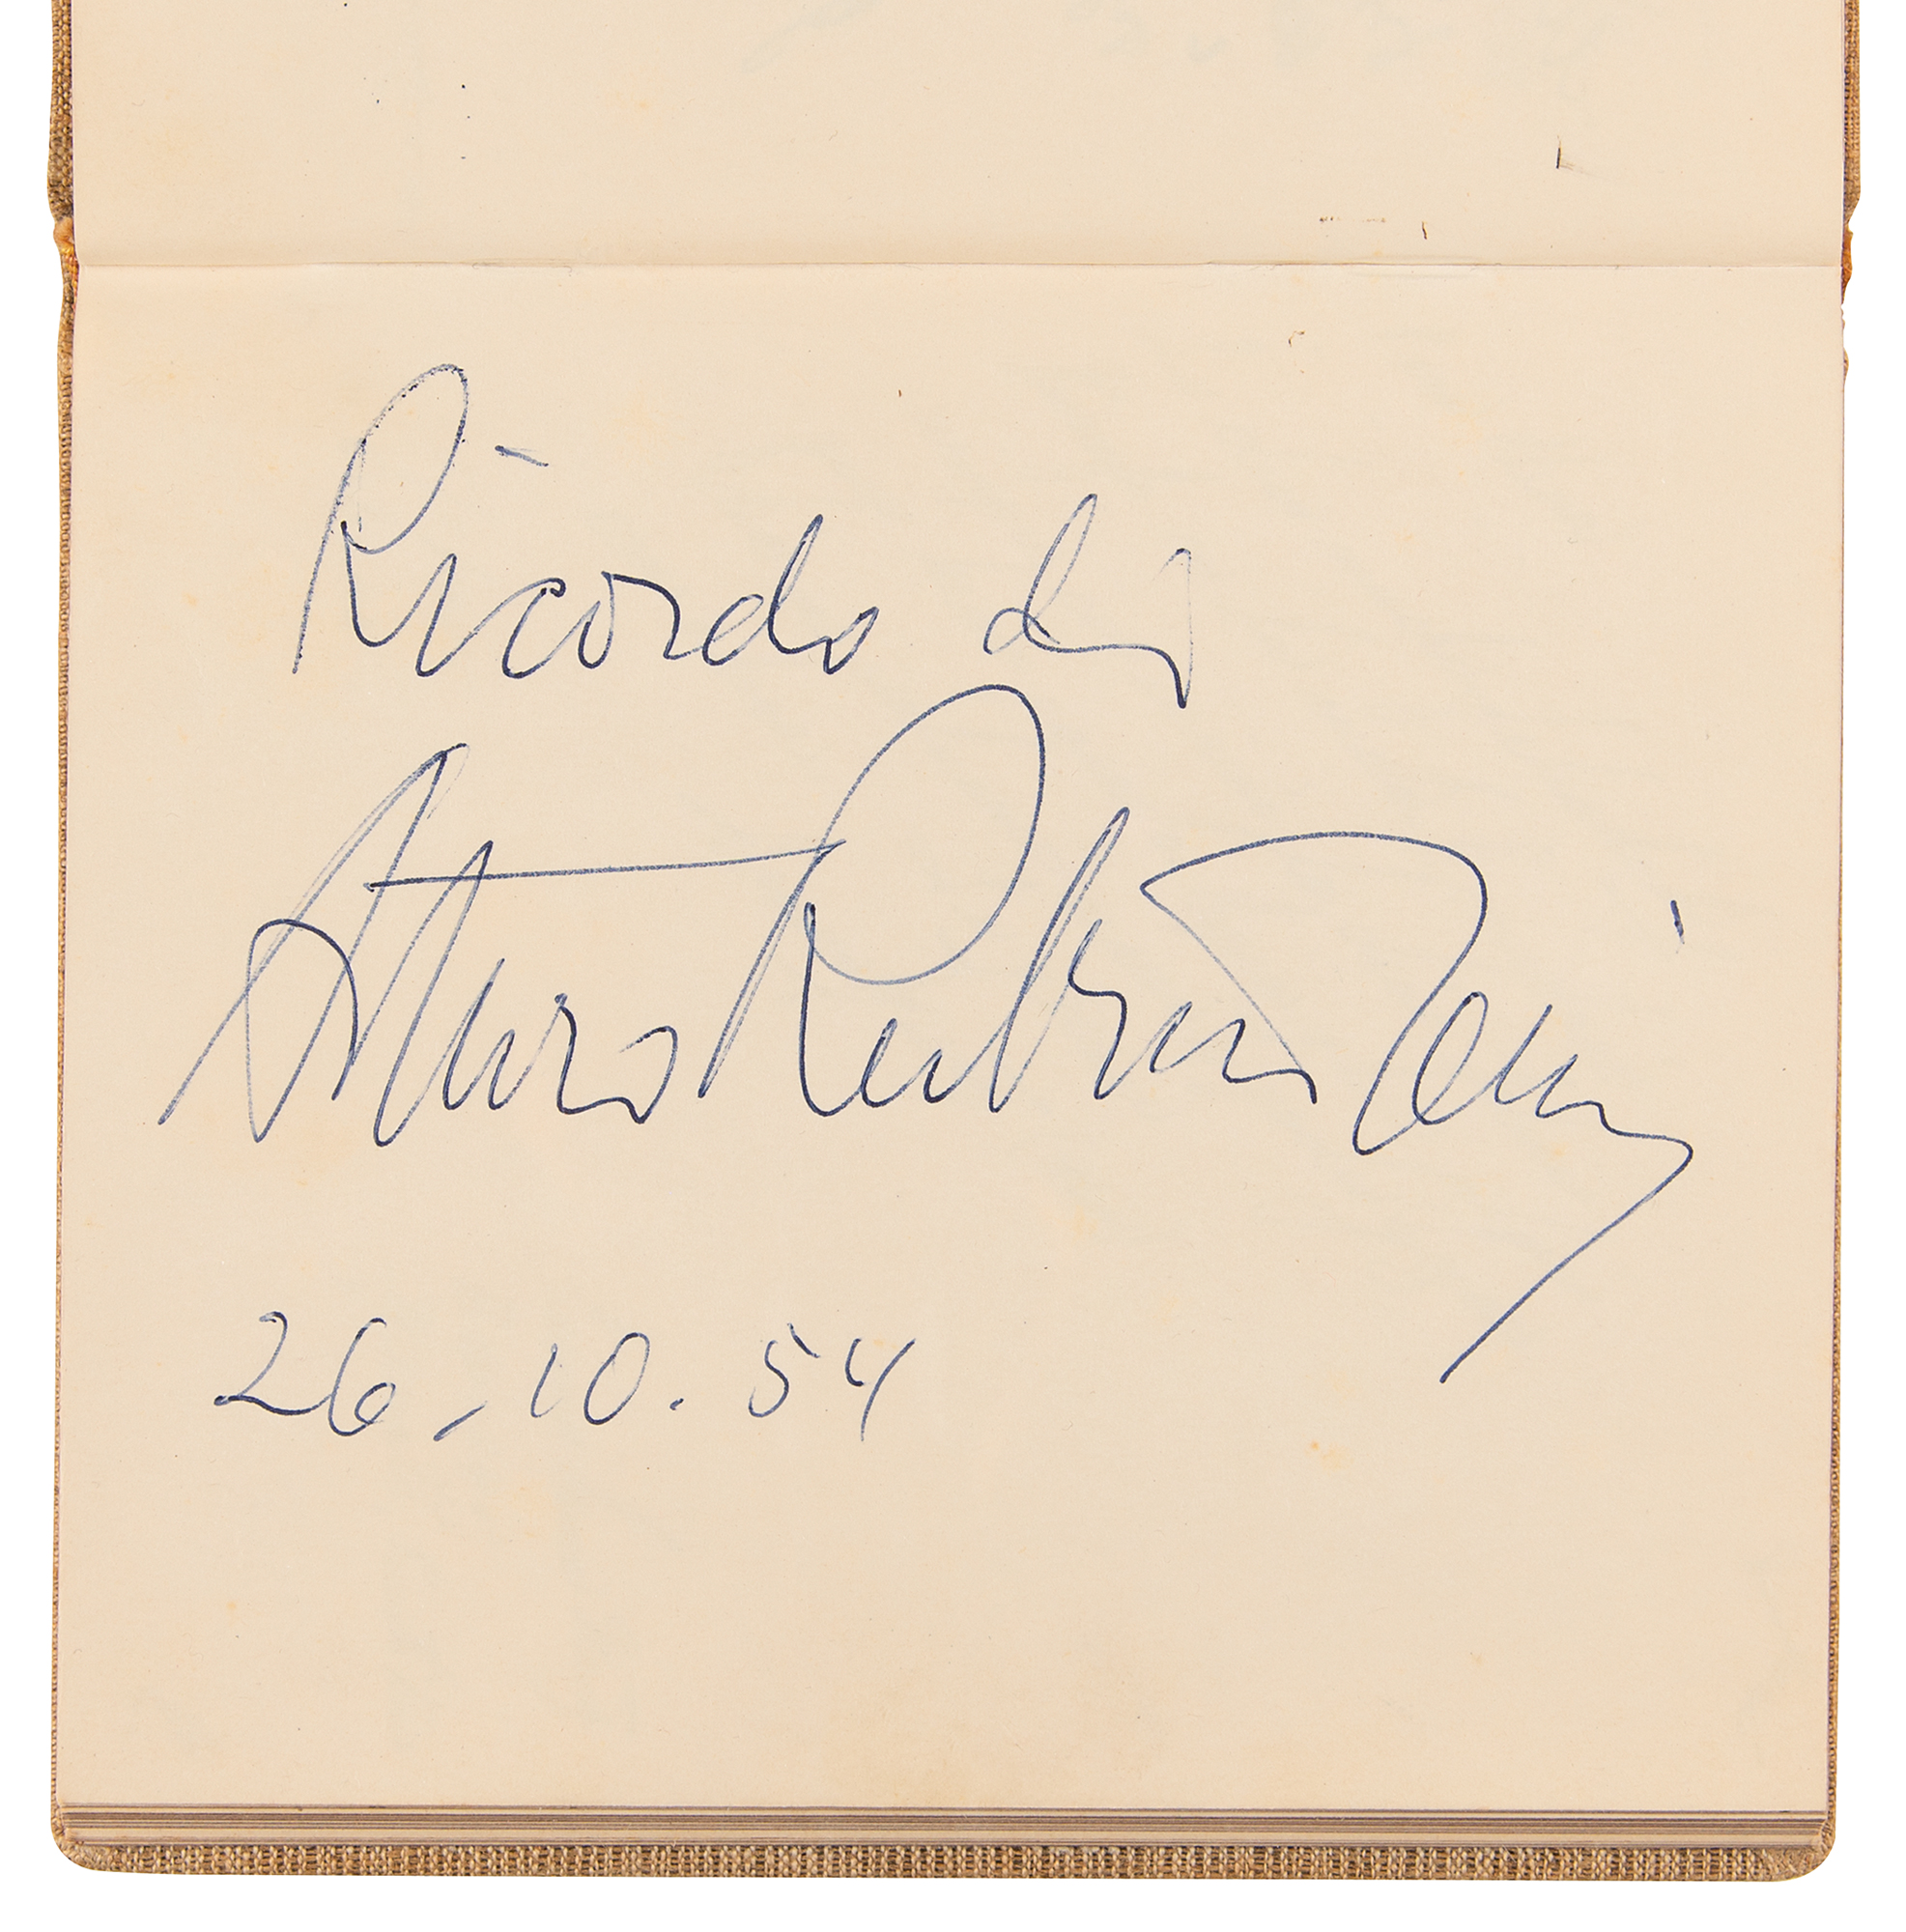 Ricordo di
Arturo Rubinstein
26.10.54